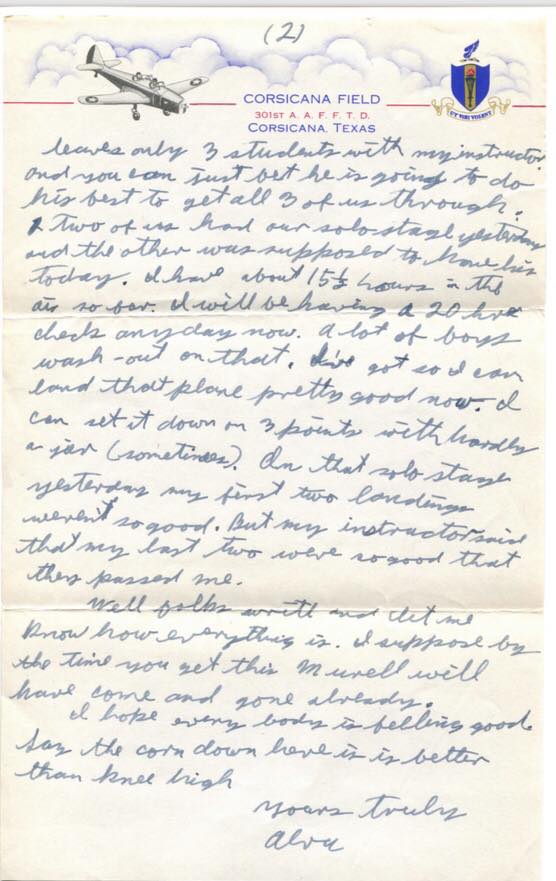 (2)
CORSICANA FIELD
301ST A. A. F. F. T. D.
CORSICANA, TEXAS
UT VIRI VOLENT
leaves only 3 students with my instructor
and you can just bet he is going to do
his best to get all 3 of us through.
Two of us had our solo stage yesterday
and the other was supposed to have his
today. I have about 15½ hours in the
air so far. I will be having a 20 hr
check anyday now. A lot of boys
wash-out on that. I've got so I can
land that plane pretty good now. I
can set it down on 3 points with hardly
a jar (sometimes). On that solo stage
yesterday my first two landings
weren't so good. But my instructor said
that my last two were so good that
they passed me.
Well folks write and let me
know how everything is. I suppose by
the time you get this Murell will
have come and gone already.
I hope every body is felling good.
Say the corn down here is is better
than knee high
yours truly
Alva